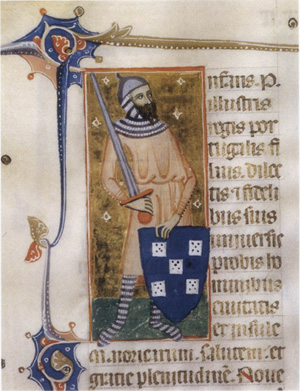 nfans. P.
illustris
regis por
tugalis fi
lius. dilec
tis ⁊ fideli
bus suis
universis
probis ho
minibus
civitatis
et insule
maioricarum. salutem. et
gratie plenitudinem. Nove